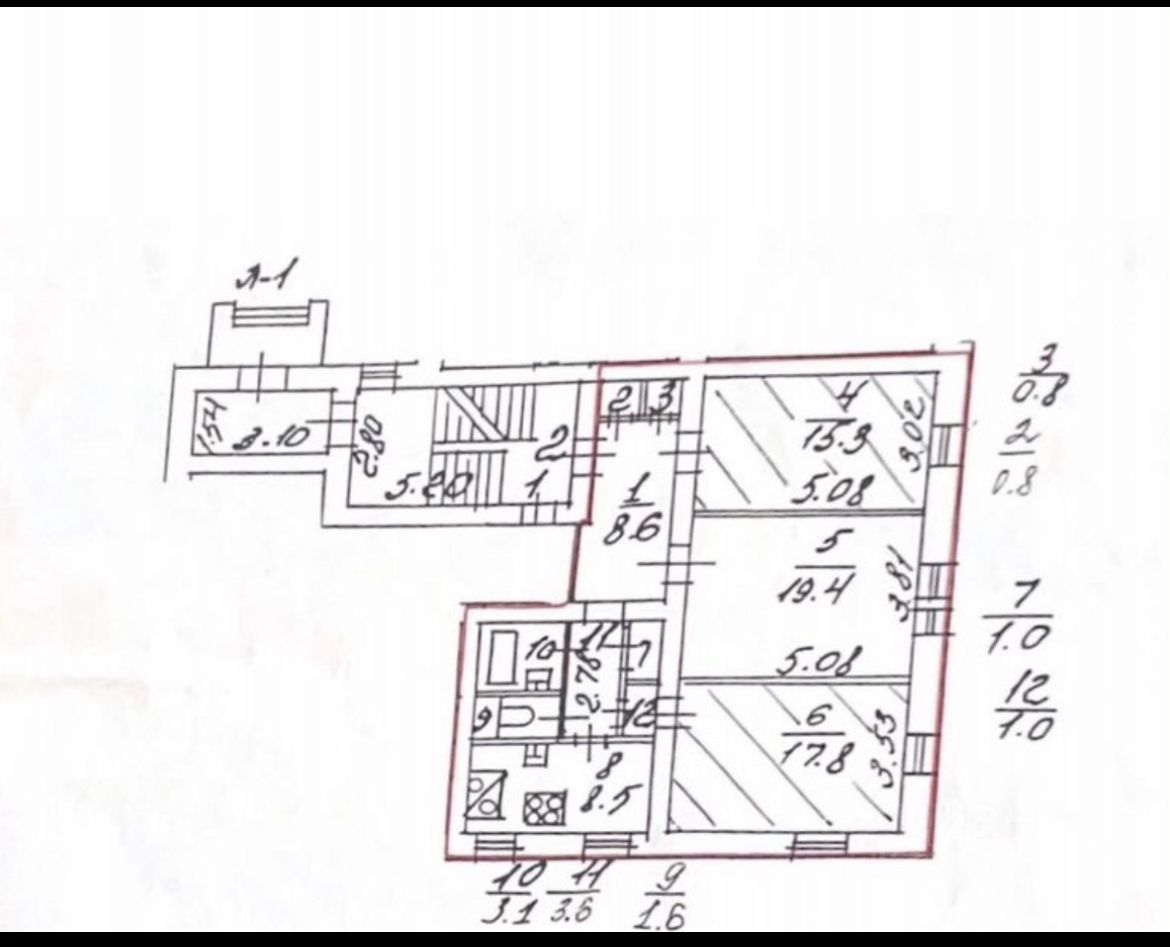 Л-1
1.54
3.10
2.80
5.20
2
1
2
3
1
8.6
4
15.3
3.02
5.08
5
19.4
3.81
5.08
6
17.8
3.53
10
11
7
2.76
9
12
8
8.5
3
0.8
2
0.8
7
1.0
12
1.0
10
3.1
11
3.6
9
1.6